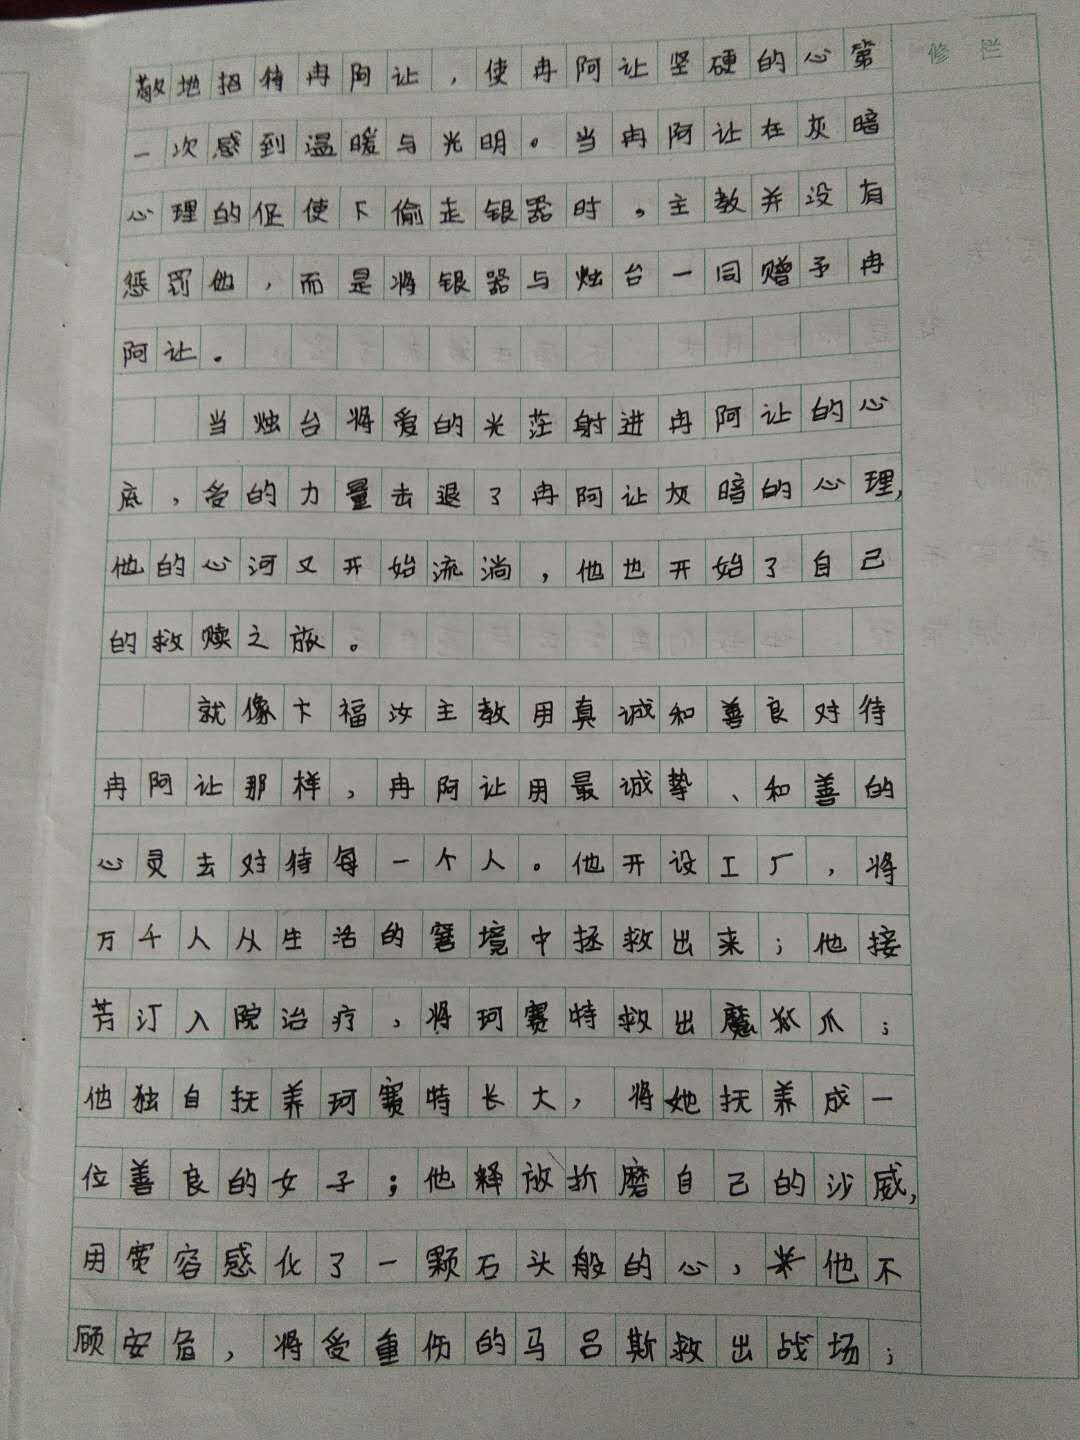 修 栏
敬地招待冉阿让，使冉阿让坚硬的心第
一次感到温暖与光明。当冉阿让在灰暗
心理的促使下偷走银器时。主教并没有
惩罚他，而是将银器与烛台一同赠予冉
阿让。
当烛台将爱的光茫射进冉阿让的心
底，爱的力量击退了冉阿让灰暗的心理，
他的心河又开始流淌，他也开始了自己
的救赎之旅。
就像卞福汝主教用真诚和善良对待
冉阿让那样，冉阿让用最诚挚、和善的
心灵去对待每一个人。他开设工厂，将
万千人从生活的窘境中拯救出来；他接
芳汀入院治疗，将珂赛特救出魔爪；
他独自抚养珂赛特长大，将她抚养成一
位善良的女子；他释放折磨自己的沙威，
用宽容感化了一颗石头般的心，他不
顾安危，将受重伤的马吕斯救出战场；